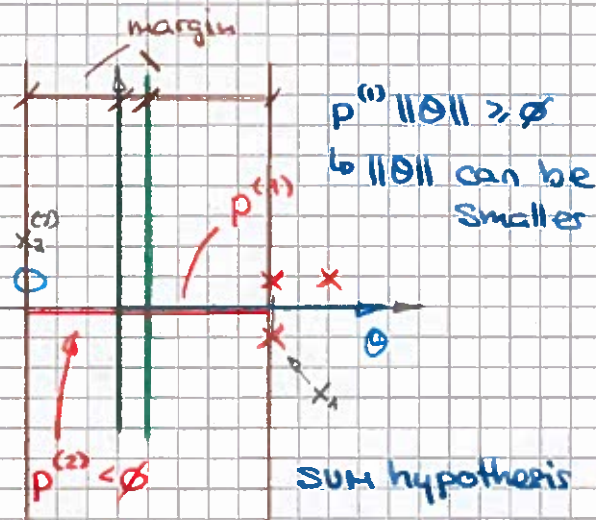 margin
p⁽¹⁾ ||Θ|| ≥ ø
↳ ||Θ|| can be
smaller
p⁽¹⁾
x₂⁽¹⁾
Θ
x₁
p⁽²⁾ < ø
SUM hypothesis